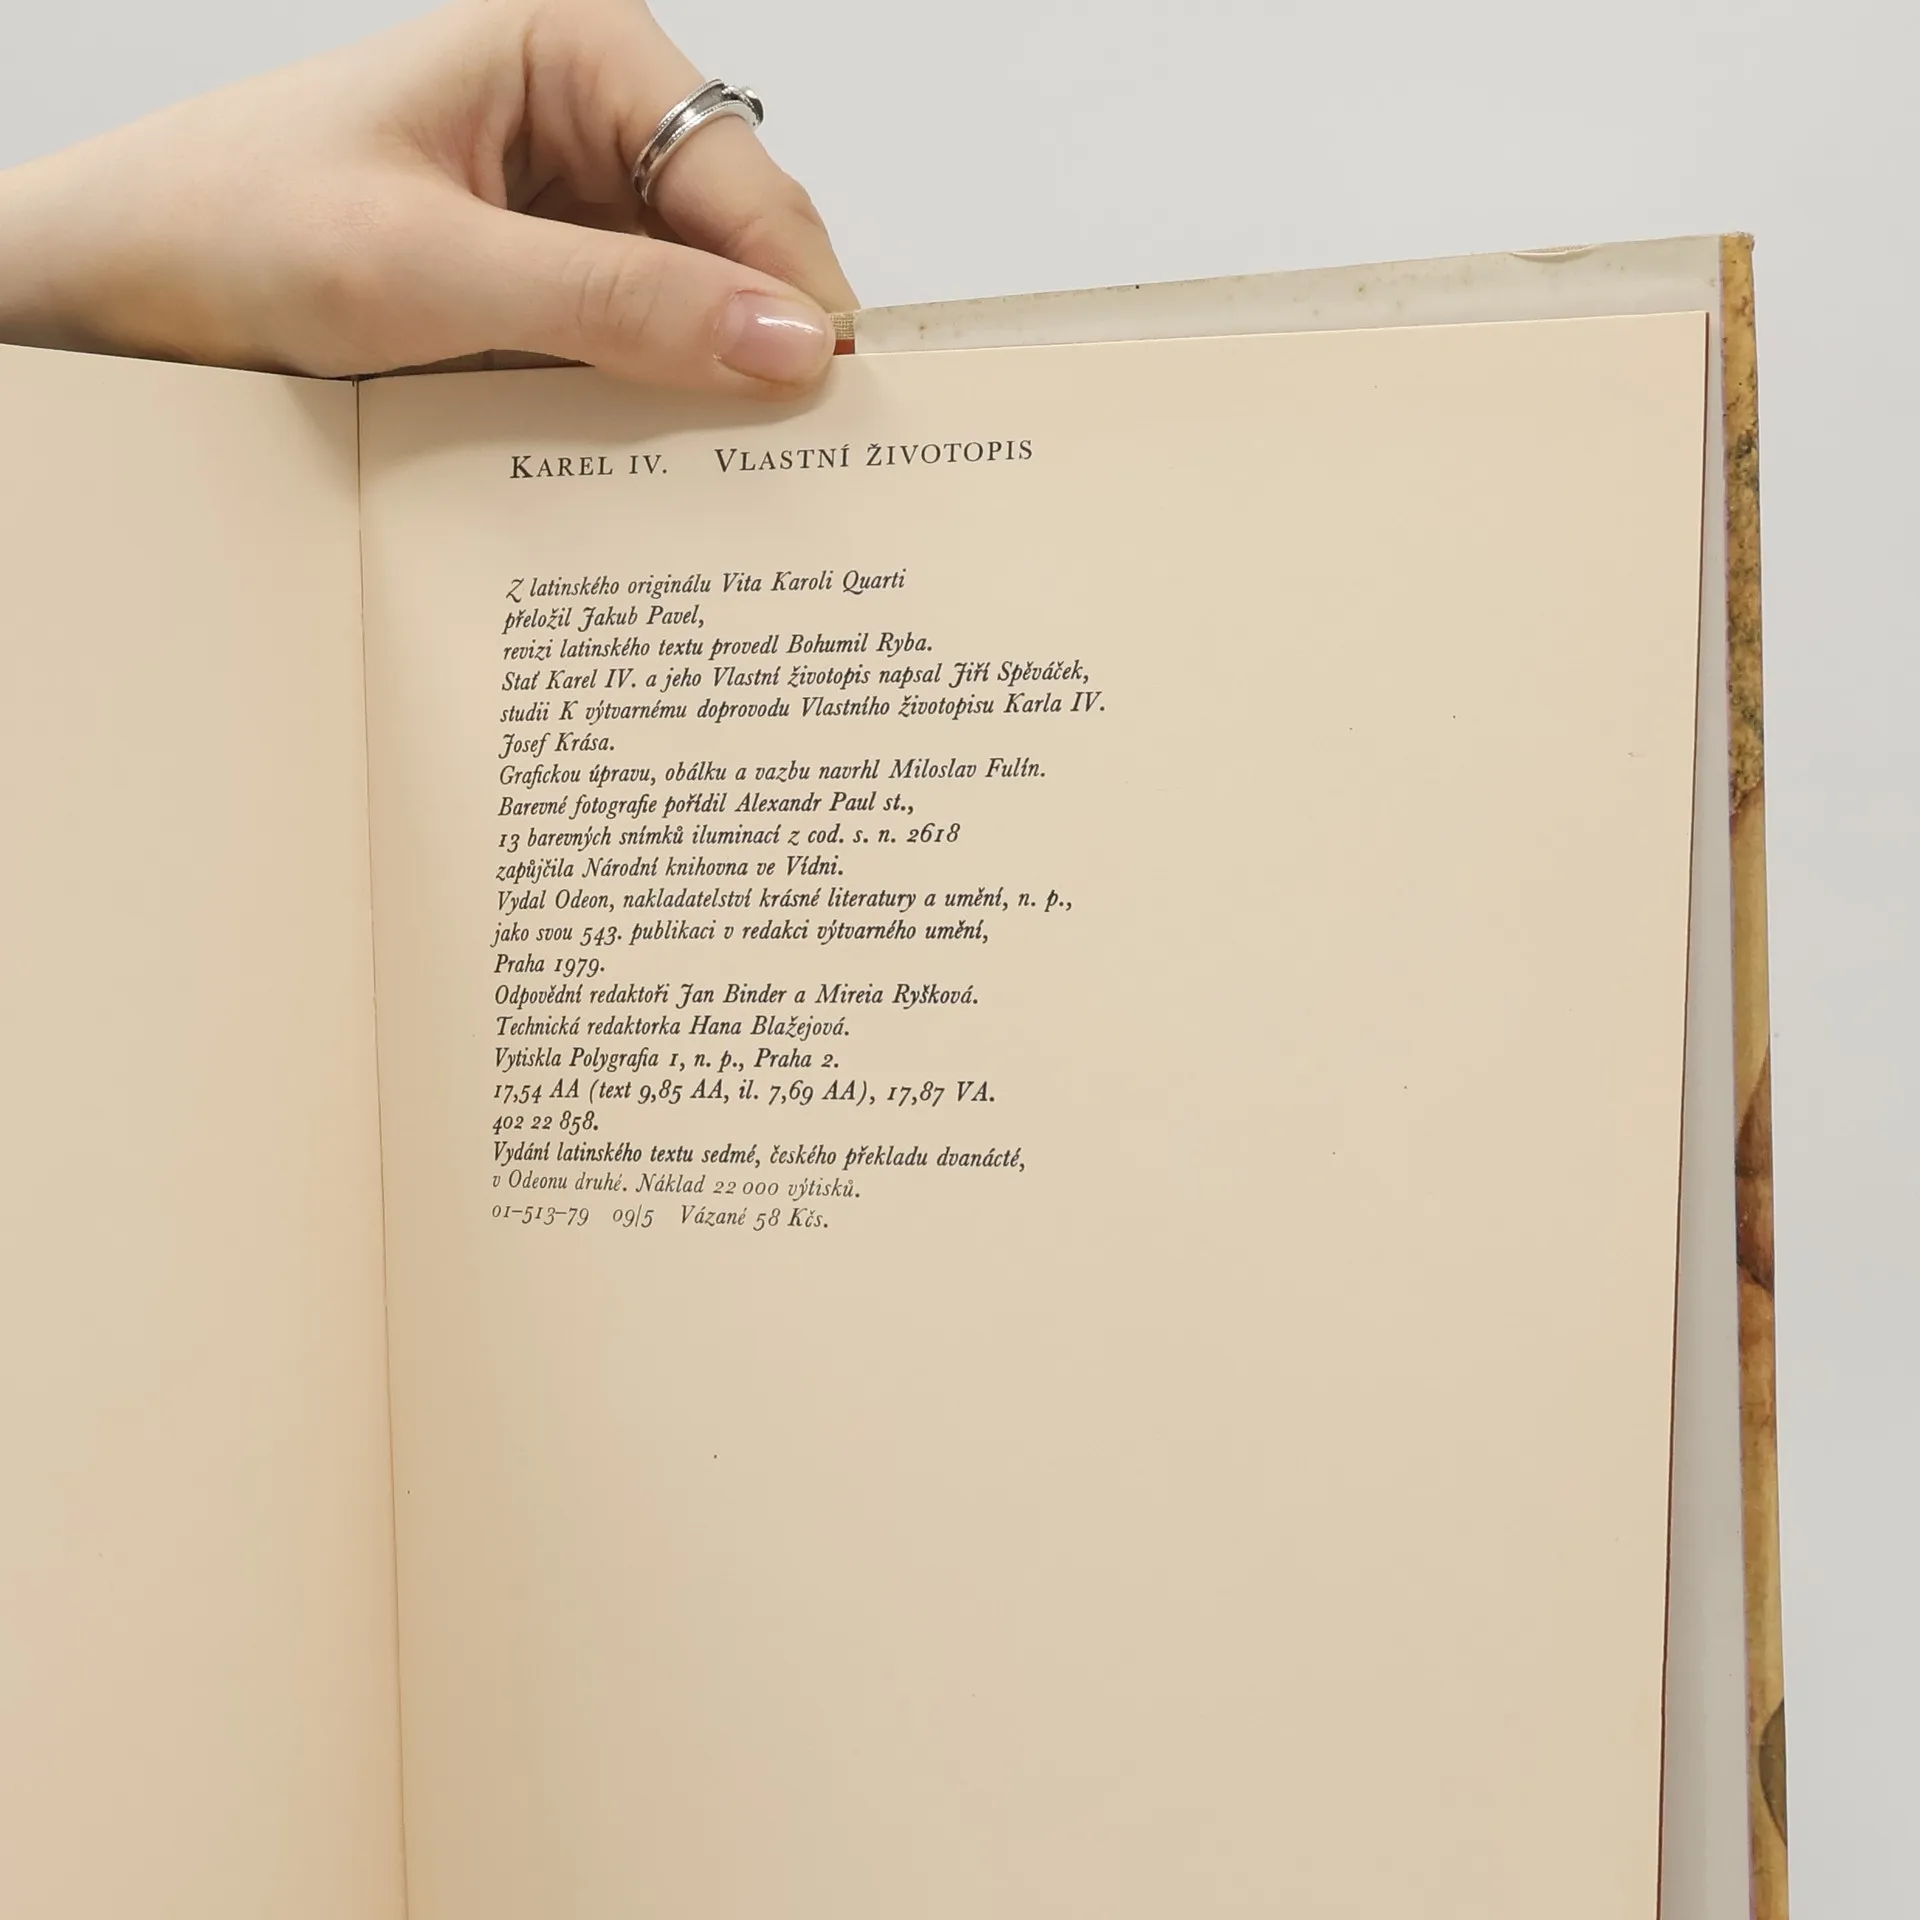 KAREL IV. VLASTNÍ ŽIVOTOPIS
Z latinského originálu Vita Karoli Quarti
přeložil Jakub Pavel,
revizi latinského textu provedl Bohumil Ryba.
Stať Karel IV. a jeho Vlastní životopis napsal Jiří Spěváček,
studii K výtvarnému doprovodu Vlastního životopisu Karla IV.
Josef Krása.
Grafickou úpravu, obálku a vazbu navrhl Miloslav Fulín.
Barevné fotografie pořídil Alexandr Paul st.,
13 barevných snímků iluminací z cod. s. n. 2618
zapůjčila Národní knihovna ve Vídni.
Vydal Odeon, nakladatelství krásné literatury a umění, n. p.,
jako svou 543. publikaci v redakci výtvarného umění,
Praha 1979.
Odpovědní redaktoři Jan Binder a Mireia Ryšková.
Technická redaktorka Hana Blažejová.
Vytiskla Polygrafia 1, n. p., Praha 2.
17,54 AA (text 9,85 AA, il. 7,69 AA), 17,87 VA.
402 22 858.
Vydání latinského textu sedmé, českého překladu dvanácté,
v Odeonu druhé. Náklad 22 000 výtisků.
01–513–79 09/5 Vázané 58 Kčs.